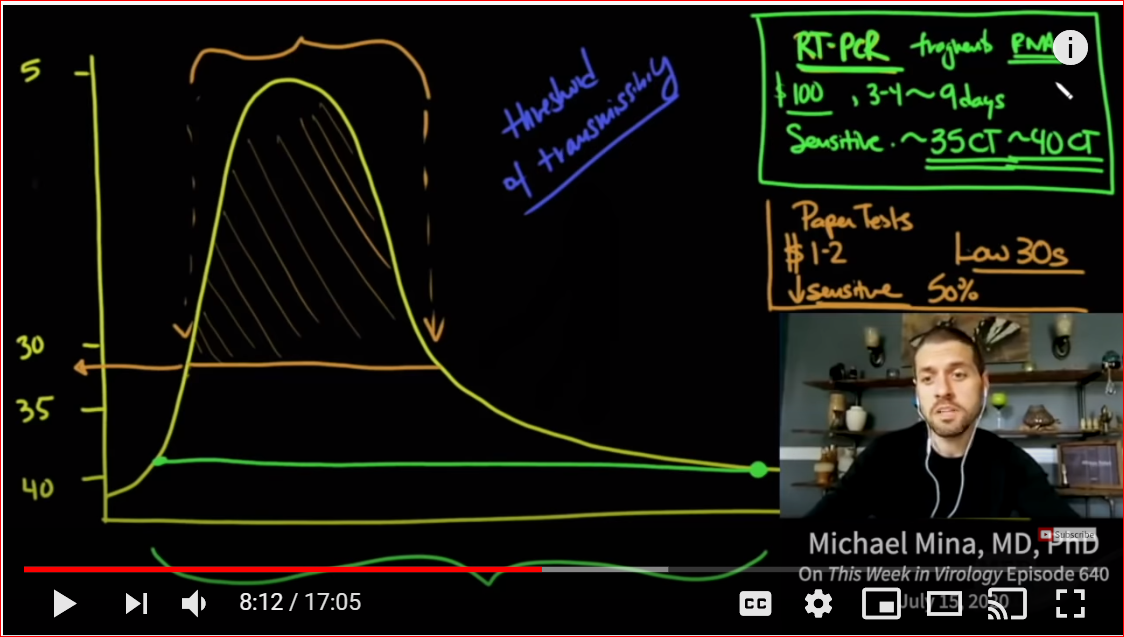 5
30
35
40
threshold
of transmissibility
RT-PCR fragments RNA
$100, 3-4 ~ 9 days
Sensitive. ~35 CT ~40 CT
Paper Tests
$1-2 Low 30s
↓ sensitive 50%
Subscribe
Michael Mina, MD, PhD
On This Week in Virology Episode 640
July 15, 2020
8:12 / 17:05
CC